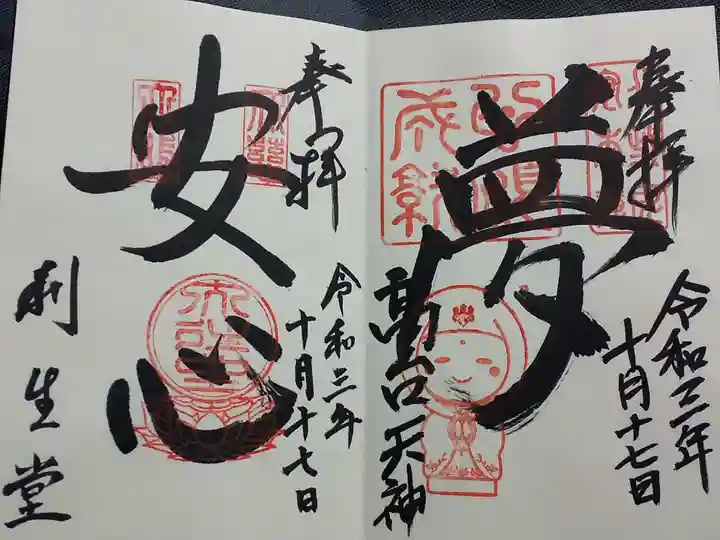 奉拝
夢
令和三年
十月十七日
高口天神
奉拝
安心
令和三年
十月十七日
利生堂